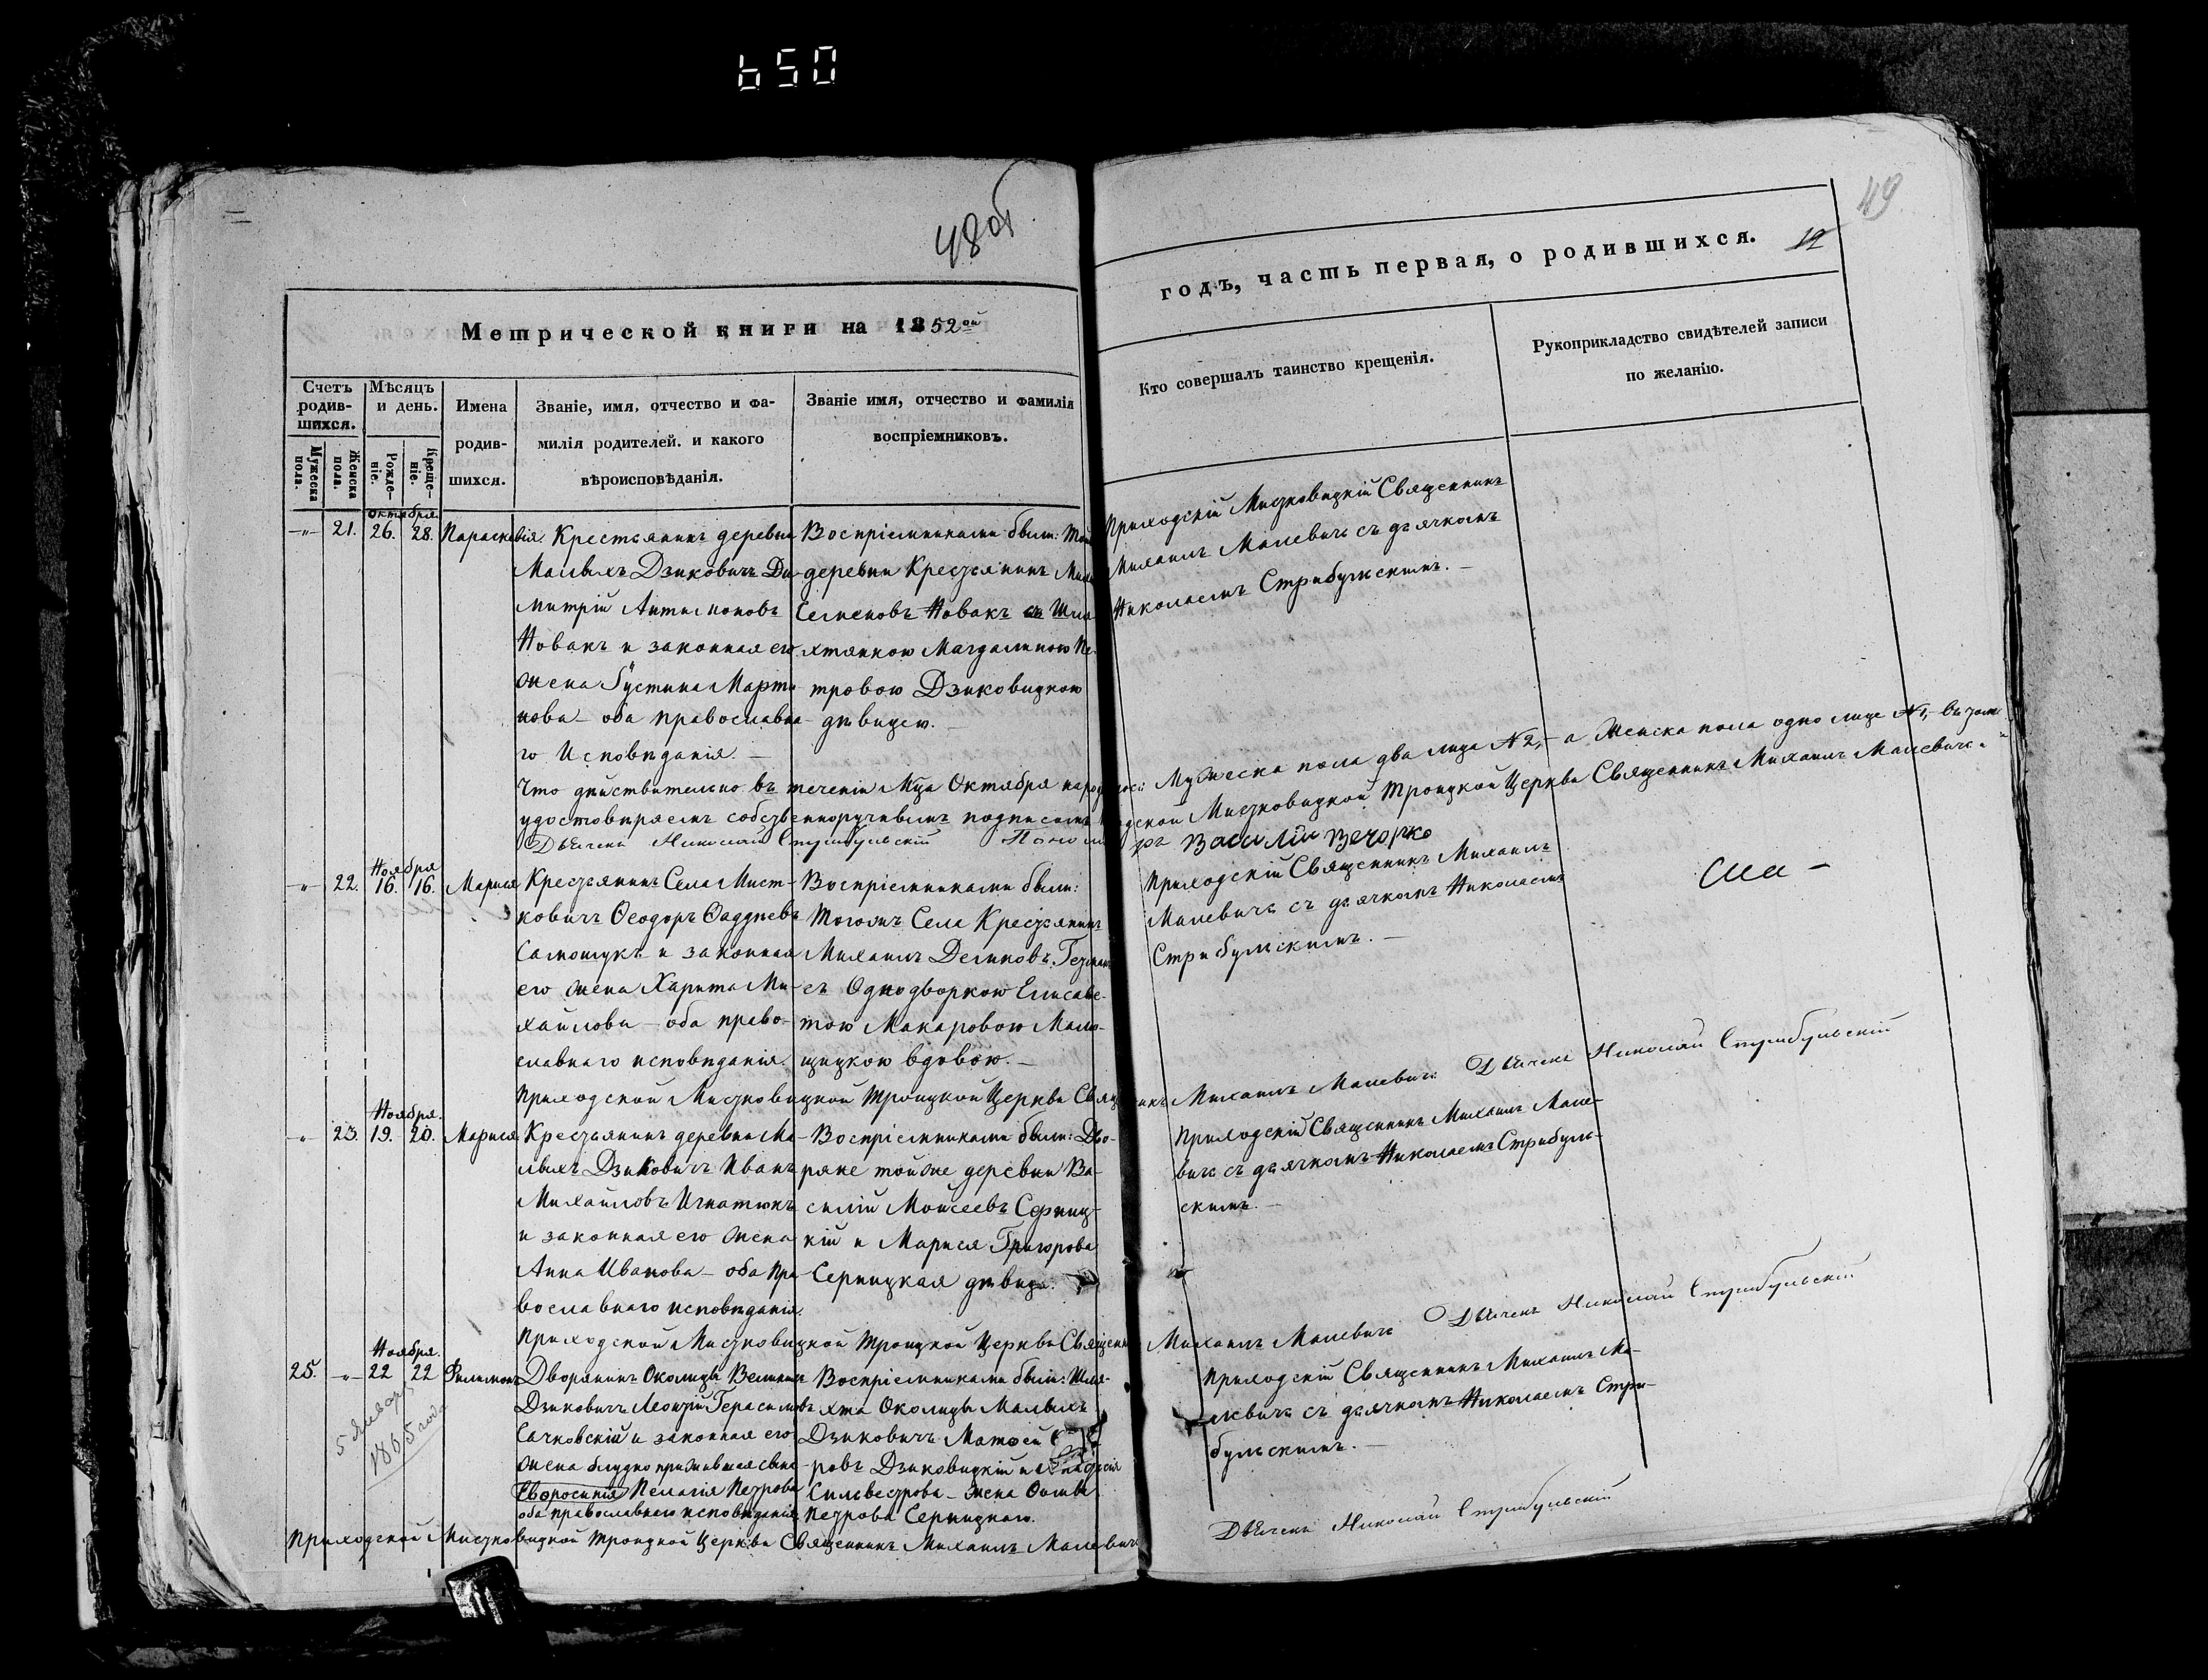 650
48 об
49
Метрической книги на 1852ой
годъ, часть первая, о родившихся.
12
Счетъ родив-
шихся.
Мужеска пола.
Женска пола.
Мѣсяцъ
и день.
Рожде-
ніе.
Креще-
ніе.
Имена
родив-
шихся.
Званіе, имя, отчество и фа-
милія родителей. и какого
вѣроисповѣданія.
Званіе имя, отчество и фамилія
воспріемниковъ.
Кто совершалъ таинство крещенія.
Рукоприкладство свидѣтелей записи
по желанію.
Октября
-„- 21. 26. 28. Параскевія.
Крестьянинъ деревни
Малыхъ Дзиковичъ Ди-
митрій Антимоновъ
Новакъ и законная его
жена Густина Марти-
нова – оба православна-
го Исповѣданія. –
Воспріемниками были: той
деревни Крестьянинъ
Семеновъ Новакъ съ Шля-
хтянкою Магдаленою Пе-
тровою Дзиковицкою
дѣвицею. –
Приходскій Мистковицкій Священникъ
Михаилъ Малевичъ съ дьячкомъ
Николаемъ Стрибульскимъ. –
Что дѣйствительно въ теченіи Мца Октября Мужеска пола два лица № 2, – а Женска пола одно лице № 1, – въ томъ
удостовѣряемъ собственноручнымъ подписомъ Мистковицкой Троицкой Церкви Священникъ Михаилъ Малевичъ
Дьячекъ Николай Стрибульскій Пономарь Василій Вечорко
Ноября
-„- 22. 16. 16. Марися
Крестьянинъ Села Мист-
ковичъ Ѳеодоръ Ѳаддѣевъ
Самощукъ и законная
его жена Харита Ми-
хайлова – оба право-
славнаго исповѣданія.
Воспріемниками были:
тогожъ Села Крестьянинъ
Михаилъ
съ Однодворкою Елисаве-
тою Макаровою Мало-
щицкою вдовою. –
Приходскій Священникъ Михаилъ
Малевичъ съ дьячкомъ Николаемъ
Стрибульскимъ. –
Приходской Мистковицкой Троицкой Церкви Священникъ Михаилъ Малевичъ Дьячекъ Николай Стрибульскій
Ноября.
-„- 23. 19. 20. Марися
Крестьянинъ деревни Ма-
лыхъ Дзиковичъ Иванъ
Михайловъ Игнатюкъ
и законная его жена
Анна Иванова – оба пра-
вославнаго исповѣданія.
Воспріемниками были: Дво-
ряне тойже деревни Ва-
силій Моисеевъ Серниц-
кій и Марися Григорова
Серницкая дѣвица.
Приходскій Священникъ Михаилъ Мале-
вичъ съ дьячкомъ Николаемъ Стрибуль-
скимъ. –
Приходской Мистковицкой Троицкой Церкви Священникъ Михаилъ Малевичъ Дьячекъ Николай Стрибульскій
Ноября.
25. -„- 22 22 Филимонъ
5 Января
1865 года
Дворянинъ Околицы Великихъ
Дзиковичъ Леонтій Герасимовъ
Сачковскій и законная его
жена блудно прижившая сына
Евфросинія Пелагія Петрова
оба православнаго исповѣданія
Воспріемниками были: Шля-
хта Околицы Малыхъ
Дзиковичъ Матѳей
ровъ Дзиковицкій и
Силвестрова – жена
Петрова Серницкаго.
Приходскій Священникъ Михаилъ Ма-
левичъ съ дьячкомъ Николаемъ Стри-
бульскимъ. –
Приходской Мистковицкой Троицкой Церкви Священникъ Михаилъ Малевичъ Дьячекъ Николай Стрибульскій